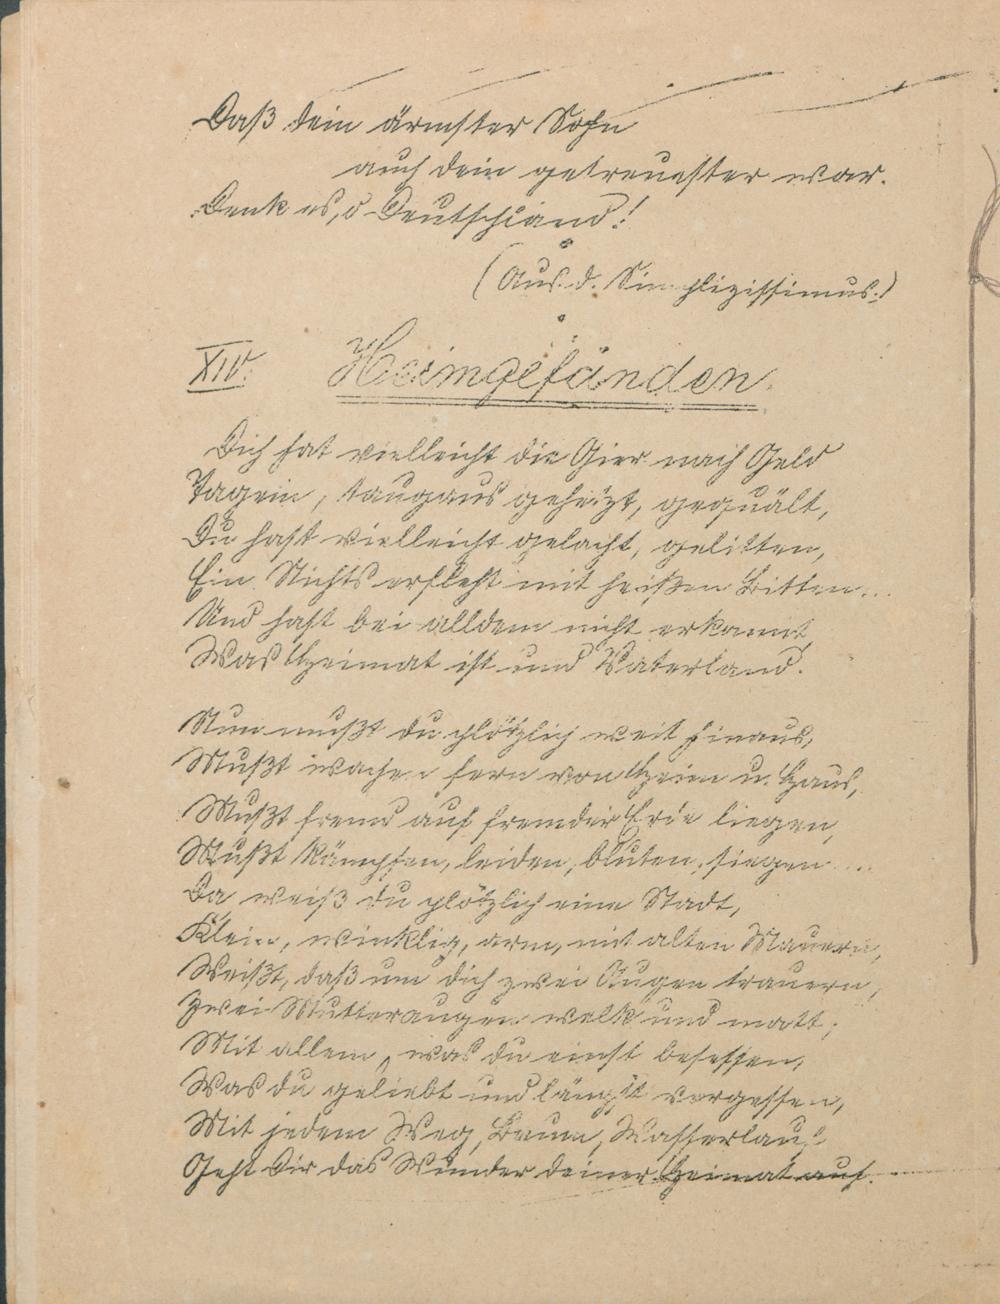 Daß dein ärmster Sohn
auch dein getreuester war.
Denk es, o Deutschland!
(Aus d. Simplizissimus.)
XIV. Heimgefunden.
Dich hat vielleicht die Gier nach Geld
Tagein, taugaus gehetzt, gequält,
Du hast vielleicht gelacht, gelitten,
Ein Nichts erfleht mit heißen Bitten...
Und hast bei alldem nicht erkannt,
Was Heimat ist und Vaterland.
Nun mußt du plötzlich weit hinaus,
Mußt wachen fern von Heim u. Haus,
Mußt fremd auf fremder Erde liegen,
Mußt kämpfen, leiden, bluten, siegen....
Da weiß du plötzlich eine Stadt,
Klein, winklig, arm, mit alten Mauern,
Weißt, daß um dich zwei Augen trauern,
Zwei Mutteraugen welk und matt;
Mit allem, was du einst besessen,
Was du geliebt und längst vergessen,
Mit jedem Weg, Baum, Wasserlauf
Geht Dir das Wunder deiner Heimat auf.